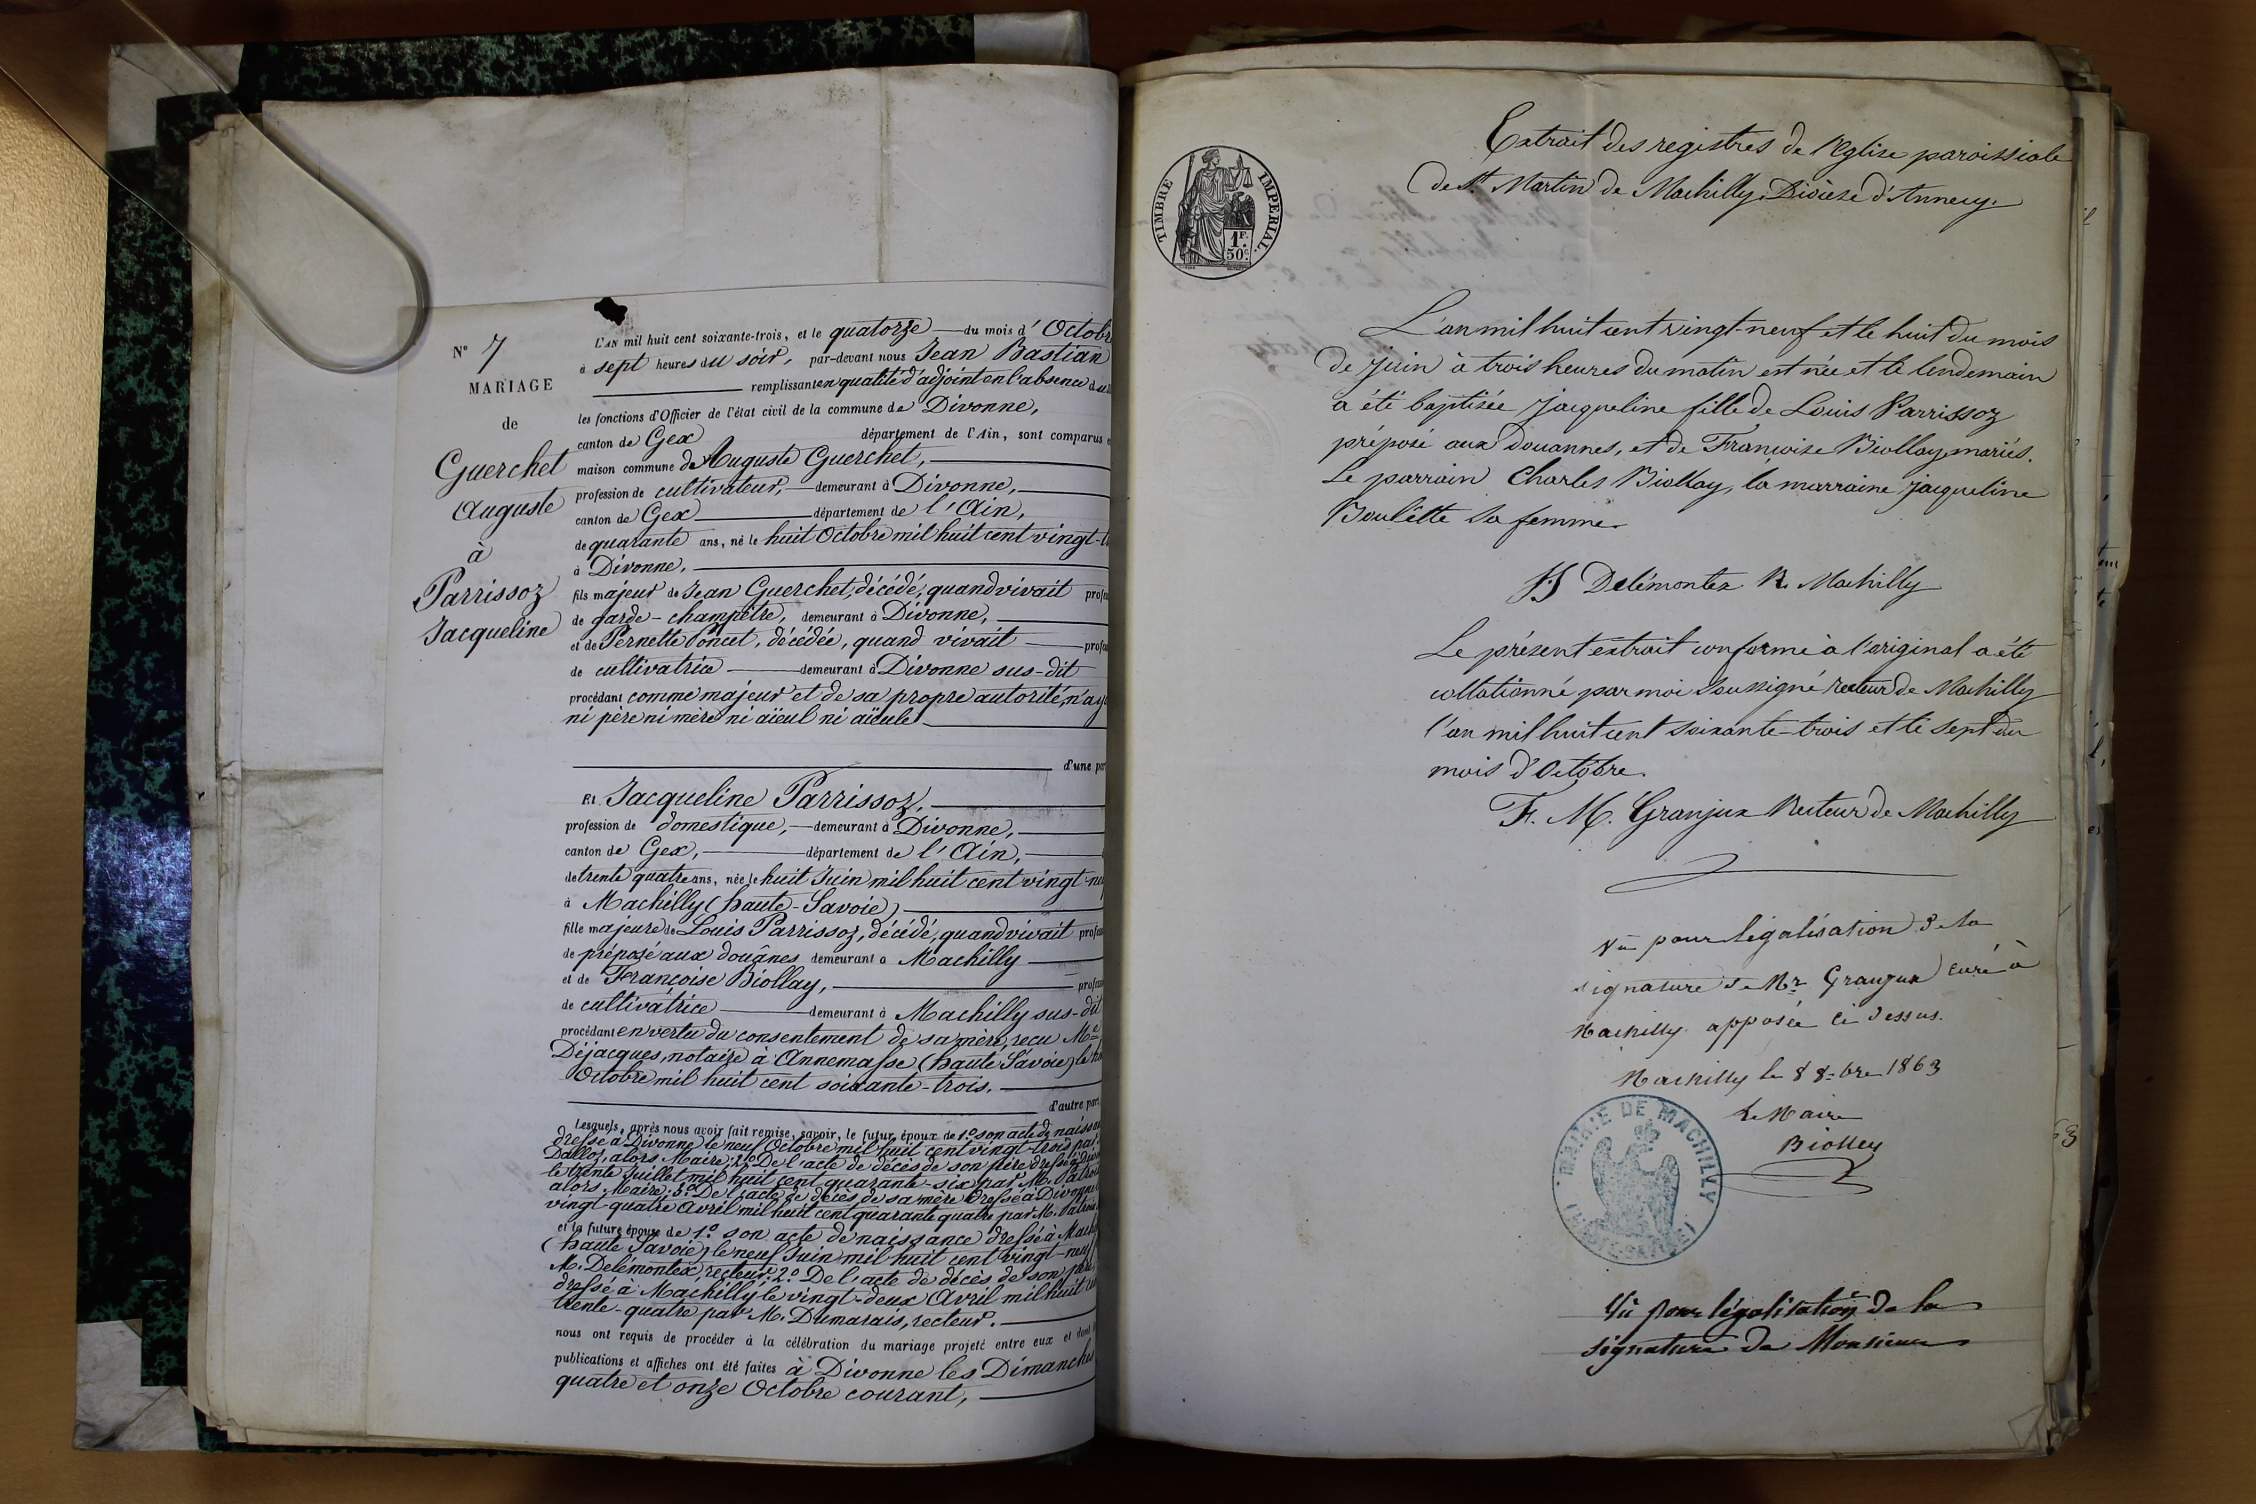 N° 7
MARIAGE
de
Guerchet
Auguste
à
Parrissoz
Jacqueline
L'AN mil huit cent soixante-trois, et le quatorze du mois d'Octobr
à sept heures du soir, par-devant nous Jean Bastian
remplissant en qualité d'adjoint en l'absence du
les fonctions d'Officier de l'état civil de la commune de Divonne,
canton de Gex département de l'Ain, sont comparus e
maison commune de Auguste Guerchet,
profession de cultivateur, demeurant à Divonne,
canton de Gex département de l'Ain,
de quarante ans, né le huit Octobre mil huit cent vingt-t
à Divonne,
fils majeur de Jean Guerchet, décédé, quand vivait profes
de garde-champêtre, demeurant à Divonne,
et de Pernette Poncet, décédée, quand vivait profes
de cultivatrice demeurant à Divonne sus-dit
procédant comme majeur et de sa propre autorité, n'ay
ni père ni mère ni aïeul ni aïeule
d'une par
Et Jacqueline Parrissoz,
profession de domestique, demeurant à Divonne,
canton de Gex, département de l'Ain,
de trente quatre ans, née le huit Juin mil huit cent vingt-neu
à Machilly (haute-Savoie)
fille majeure de Louis Parrissoz, décédé, quand vivait profes
de préposé aux douânes demeurant à Machilly
et de Françoise Biollay, profes
de cultivatrice demeurant à Machilly sus-dit
procédant en vertu du consentement de sa mère, reçu Me
Déjacques, notaire à Annemasse (haute Savoie) le
Octobre mil huit cent soixante-trois.
d'autre part.
Lesquels, après nous avoir fait remise, savoir, le futur époux de 1° son acte de naissan
dressé à Divonne le neuf Octobre mil huit cent vingt-trois par
Dalloz, alors Maire; 2° De l'acte de décès de son père dressé à Divon
le trente Juillet mil huit cent quarante-six par M.
alors Maire; 3° De l'acte de décès de sa mère dressé à Divonne
vingt-quatre Avril mil huit cent quarante quatre par M.
et la future épouse de 1° son acte de naissance dressé à Mach
(haute Savoie) le neuf Juin mil huit cent vingt-neuf
M. Delémontex, recteur; 2° De l'acte de décès de son père
dressé à Machilly le vingt-deux Avril mil huit
trente-quatre par M. Dumarais, recteur.
nous ont requis de procéder à la célébration du mariage projeté entre eux et dont
publications et affiches ont été faites à Divonne les Dimanches
quatre et onze Octobre courant,
TIMBRE IMPERIAL.
1F.
50c.
Extrait des registres de l'Eglise paroissiale
de St Martin de Machilly, Diocèse d'Annecy.
L'an mil huit cent vingt-neuf et le huit du mois
de Juin à trois heures du matin est née et le lendemain
a été baptisée Jacqueline fille de Louis Parrissoz
préposé aux douannes, et de Françoise Biollay mariés.
Le parrain Charles Biollay, la marraine Jacqueline
Boulette sa femme.
Delémontex R. Machilly
Le présent extrait conforme à l'original a été
collationné par moi soussigné recteur de Machilly
l'an mil huit cent soixante-trois et le sept du
mois d'Octobre.
F. M. Granjux Recteur de Machilly
Vu pour légalisation de la
signature de Mr Granjux curé à
Machilly apposée ci dessus.
Machilly le 8 8-bre 1863
Le Maire
Biolley
MAIRIE DE MACHILLY
(HTE SAVOIE)
Vu pour légalisation de la
signature de Monsieur